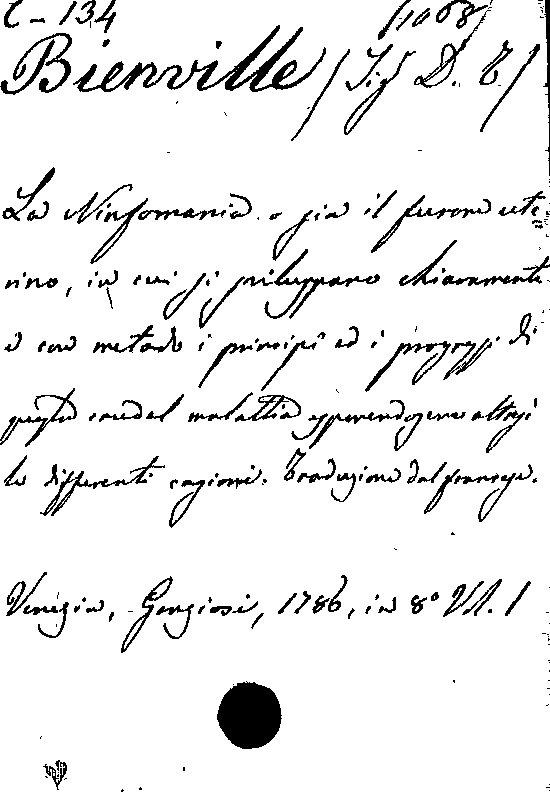 C - 134 11068
Bienville / Sig D. T /
La Ninfomania o sia il furore ute=
rino, in cui si sviluppano chiaramente
e con metodo i principi ed i progressi di
questa crudel malattia esponendosene altresì
le differenti cagioni. Traduzione dal francese.
Venezia, Gorgiosi, 1786, in 8° Vol. 1